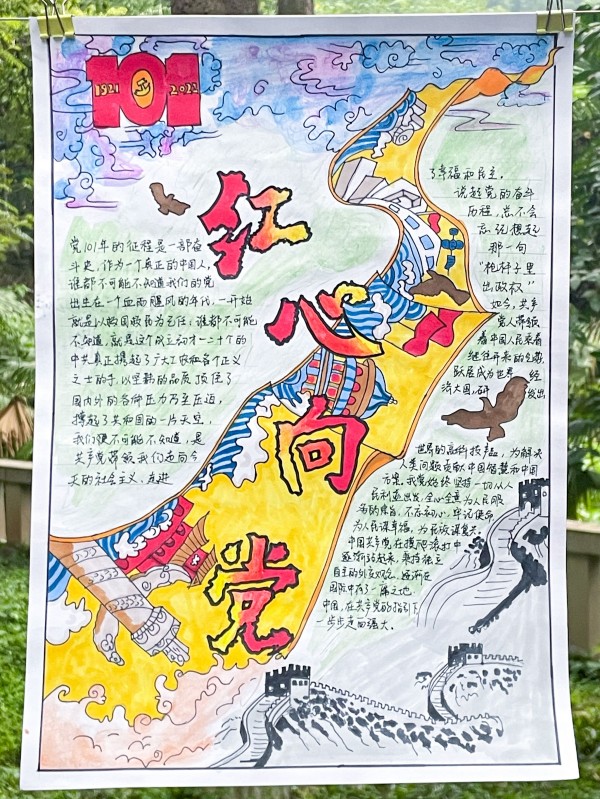 101
1921 2022
红心向党
党101年的征程是一部奋
斗史，作为一个真正的中国人，
谁都不可能不知道我们的党
出生在一个血雨飓风的年代，一开始
就是以救国救民为己任；谁都不可能
不知道，就是这个成立初才一二十个的
中共真正撑起了广大正义
士的手，以坚韧的品质顶住了
国内外的各种压力万至压迫，
撑起了共和国的一片天空，
我们便不可能不知道，是
共产党带领我们走向今
天的社会主义，走进
了幸福和民主，
说起党的奋斗
历程，总不会
忘记想起
那一句
“枪杆子里
出政权”
如今，共产
党人带领
着中国人民乘着
继往开来的
跃居成为世界 经
济大国，研 发出
世界的高科技产品，为解决
人类问题贡献中国智慧和中国
方案，我党始终坚持一切从人
民利益出发，全心全意为人民服
务的宗旨，不忘初心，牢记使命
为人民谋幸福，为民族谋复兴。
中国共产党在摸爬滚打中
逐渐站起来，秉持独立
自主的外交，逐渐在
国际中有了一席之地
中国，在共产党的指引下
一步步走向强大。